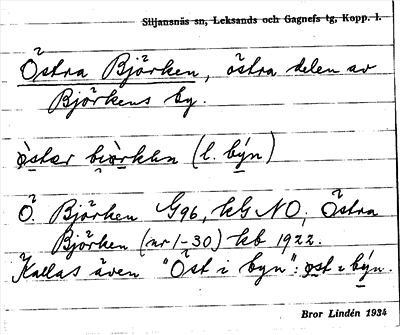 Siljansnäs sn, Leksands och Gagnefs tg, Kopp. l.
Östra Björken, östra delen av
Björkens by.
östær biòrkan (l. býn)
Ö. Björken G96, kG NO, Östra
Björken (nr 1-30) kb 1922.
Kallas även "Öst i byn": öst i býn.
Bror Lindén 1934